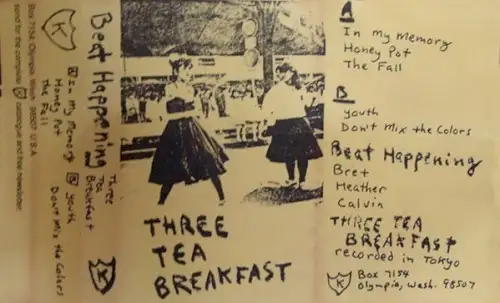 Box 7154 Olympia Wash. 98507 U.S.A
send for the complete K catalogue and free newsletter.
K
Beat Happening
Three
Tea
Breakfast
A In my Memory
Honey Pot
The Fall
B youth
Don't Mix the Colors
K
THREE
TEA
BREAKFAST
A
In my Memory
Honey Pot
The Fall
B
youth
Don't Mix the Colors
Beat Happening
Bret
Heather
Calvin
THREE TEA
BREAKFAST
recorded in Tokyo
K Box 7154
Olympia, Wash. 98507